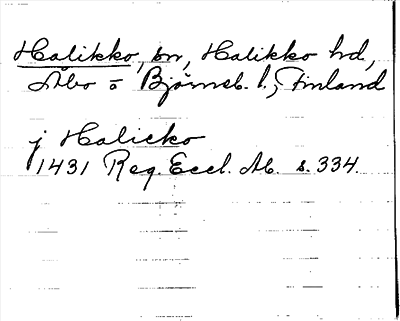 Halikko, sn, Halikko hd,
Åbo o Björneb. l., Finland
j Halicko
1431 Reg. Eccl. Ab. s. 334.